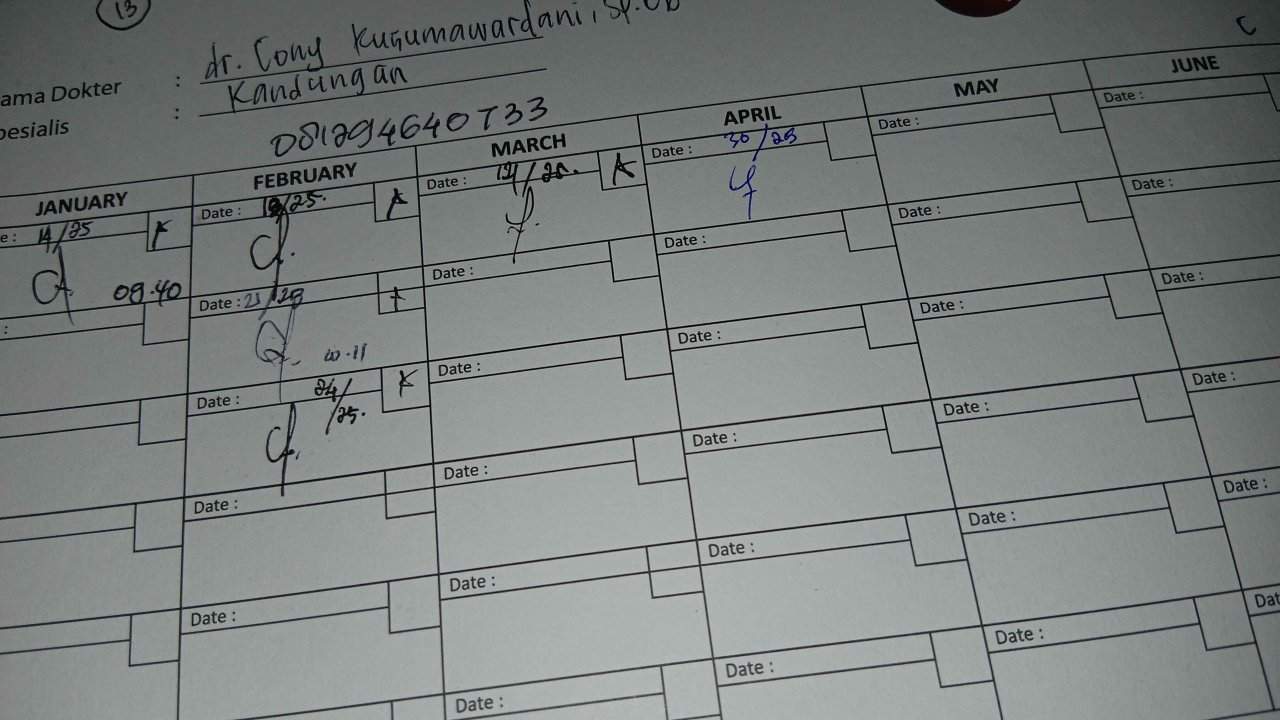 13
ama Dokter : dr. Cony Kusumawardani, Sp.OG
pesialis : Kandungan
081294640733
JANUARY FEBRUARY MARCH APRIL MAY JUNE
e: 14/25 Date: /25. Date: /25. Date: 30/25 Date: Date:
09.40
: Date: Date: Date: Date: Date:
Date: 24/25. Date: Date: Date: Date:
Date: Date: Date: Date: Date:
Date: Date: Date: Date: Date:
Date: Date: Date: